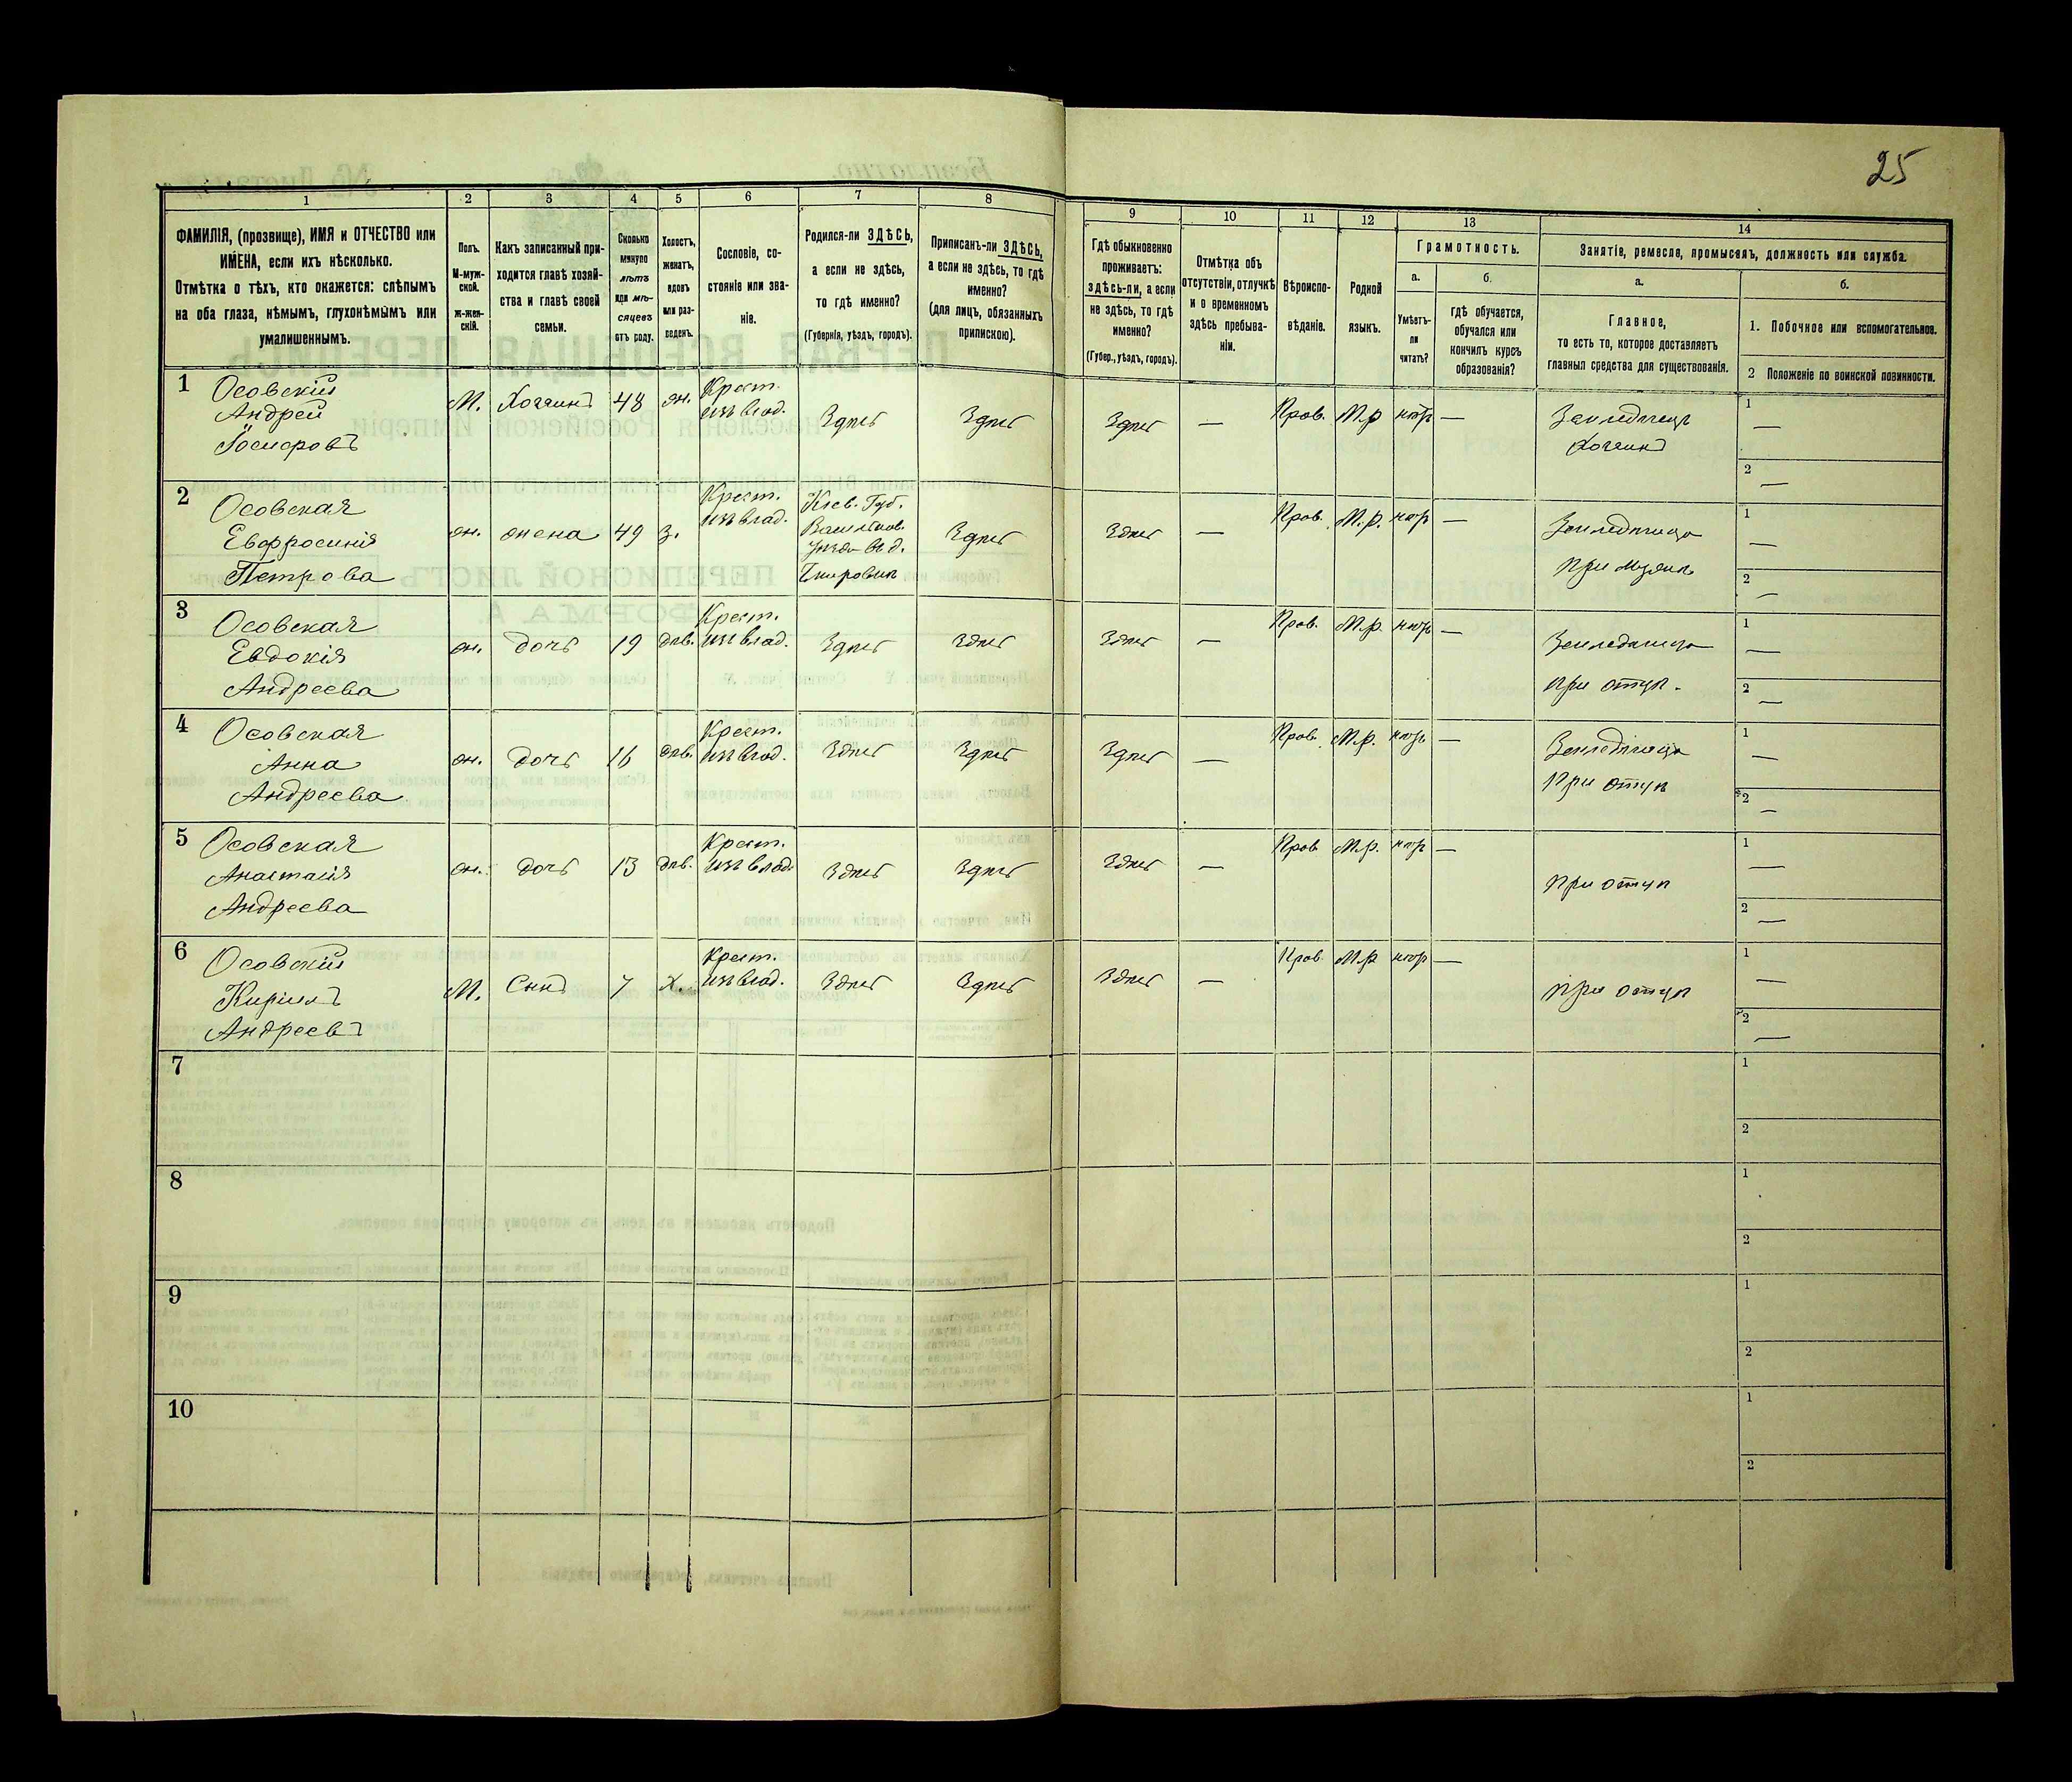 25
1 2 3 4 5 6 7 8 9 10 11 12 13 14
ФАМИЛІЯ, (прозвище), ИМЯ и ОТЧЕСТВО или
ИМЕНА, если ихъ нѣсколько.
Отмѣтка о тѣхъ, кто окажется: слѣпымъ
на оба глаза, нѣмымъ, глухонѣмымъ или
умалишеннымъ.
Полъ.
М-муж-
ской.
ж-жен-
скій.
Какъ записанный при-
ходится главѣ хозяй-
ства и главѣ своей
семьи.
Сколько
минуло
лѣтъ
или мѣ-
сяцевъ
отъ роду.
Холостъ,
женатъ,
вдовъ
или раз-
веденъ.
Сословіе, со-
стояніе или зва-
ніе.
Родился-ли ЗДѢСЬ,
а если не здѣсь,
то гдѣ именно?
(Губернія, уѣздъ, городъ).
Приписанъ-ли ЗДѢСЬ,
а если не здѣсь, то гдѣ
именно?
(для лицъ, обязанныхъ
припискою).
Гдѣ обыкновенно
проживаетъ:
здѣсь-ли, а если
не здѣсь, то гдѣ
именно?
(Губер., уѣздъ, городъ).
Отмѣтка объ
отсутствіи, отлучкѣ
и о временномъ
здѣсь пребыва-
ніи.
Вѣроиспо-
вѣданіе.
Родной
языкъ.
Грамотность.
а.
Умѣетъ-
ли
читать?
б.
гдѣ обучается,
обучался или
кончилъ курсъ
образованія?
Занятіе, ремесло, промыселъ, должность или служба.
а.
Главное,
то есть то, которое доставляетъ
главныя средства для существованія.
б.
1. Побочное или вспомогательное.
2 Положеніе по воинской повинности.
1
Осовскій
Андрей
М. Хозяинъ 48 ж.
Крест.
изъ влад.
Здѣсь Здѣсь Здѣсь — Прав. М.р нѣтъ —
Хозяинъ
1 —
2 —
2
Осовская
Евфросинія
Петрова
ж. жена 49 з.
Крест.
изъ влад.
Кіев. Губ.
Здѣсь Здѣсь — Прав. М.р. нѣтъ —
при мужѣ
1 —
2 —
3
Осовская
Евдокія
Андреева
ж. дочь 19 дѣв.
Крест.
изъ влад.
Здѣсь Здѣсь Здѣсь — Прав. М.р. нѣтъ —
при отцѣ.
1 —
2 —
4
Осовская
Анна
Андреева
ж. дочь 16 дѣв.
Крест.
изъ влад.
Здѣсь Здѣсь Здѣсь — Прав. М.р. нѣтъ —
при отцѣ
1 —
2 —
5
Осовская
Анастасія
Андреева
ж. дочь 13 дѣв.
Крест.
изъ влад.
Здѣсь Здѣсь Здѣсь — Прав М.р. нѣтъ —
при отцѣ
1 —
2 —
6
Осовскій
Кирилъ
Андреевъ
М. Сынъ 7 х.
Крест.
изъ влад.
Здѣсь Здѣсь Здѣсь — Прав. М.р нѣтъ —
при отцѣ
1 —
2 —
7
1
2
8
1
2
9
1
2
10
1
2